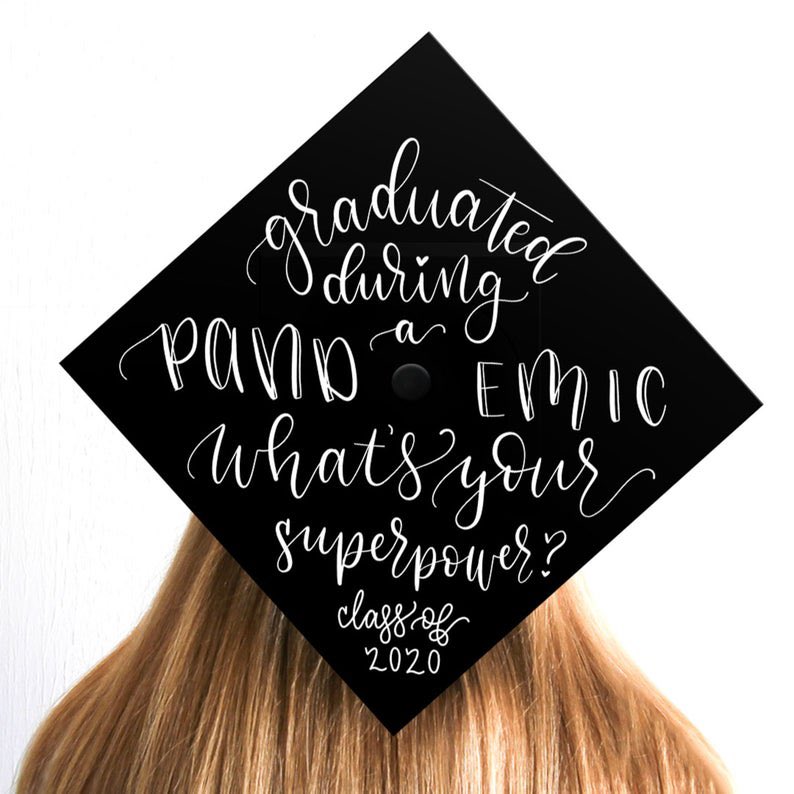 graduated
during
a
PANDEMIC
what's your
superpower?
class of
2020